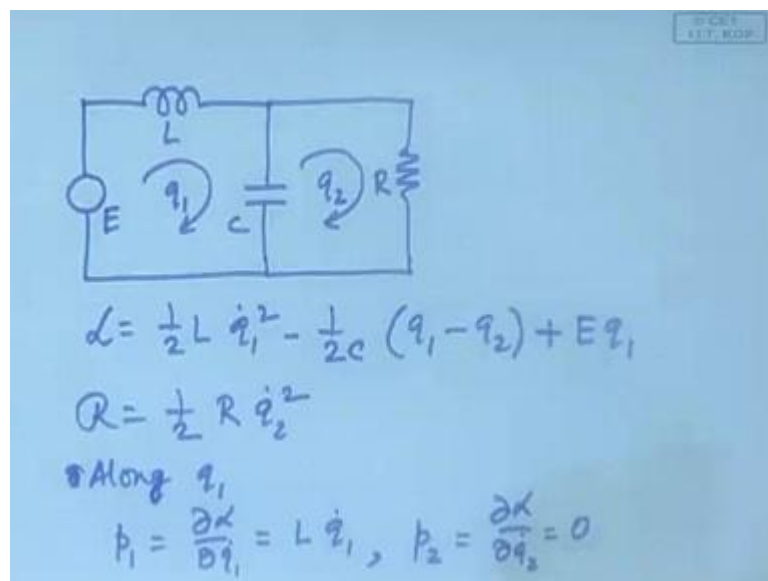 © CET
I.I.T. KGP
L
E
q₁
C
q₂
R
ℒ = ½ L q̇₁² - 1/2C (q₁ - q₂) + E q₁
ℛ = ½ R q̇₂²
Along q₁
p₁ = ∂ℒ/∂q̇₁ = L q̇₁, p₂ = ∂ℒ/∂q̇₂ = 0